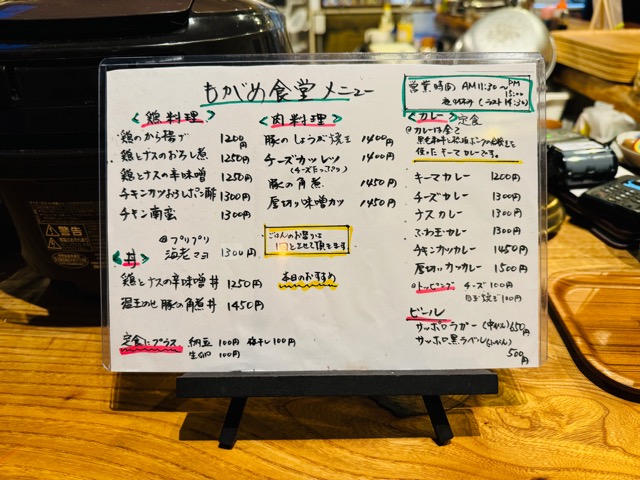 もがめ食堂 メニュー
営業時間 AM11:30〜PM
15:00
(ラスト14:30)
<鶏料理>
鶏のから揚げ 1200円
鶏とナスのおろし煮 1250円
鶏とナスの辛味噌 1250円
チキンカツおろしポン酢 1300円
チキン南蛮 1300円
@プリプリ
海老マヨ 1300円
<丼>
鶏とナスの辛味噌丼 1250円
豚の角煮丼 1450円
定食にプラス 納豆 100円 梅干し 100円
生卵 100円
<肉料理>
豚のしょうが焼き 1400円
チーズカツレツ 1400円
(チーズたっぷり)
豚の角煮 1450円
厚切り味噌カツ 1450円
ごはんのお替りは
とさせて頂きます
本日のおすすめ
<カレー>定食
@カレーは全て
使ったキーマカレーです。
キーマカレー 1200円
チーズカレー 1300円
ナスカレー 1300円
ふわ玉カレー 1300円
チキンカツカレー 1450円
厚切りカツカレー 1500円
@トッピング チーズ 100円
目玉焼き 100円
ビール
サッポロラガー(中びん) 650円
サッポロ黒ラベル(小びん)
500円
警告